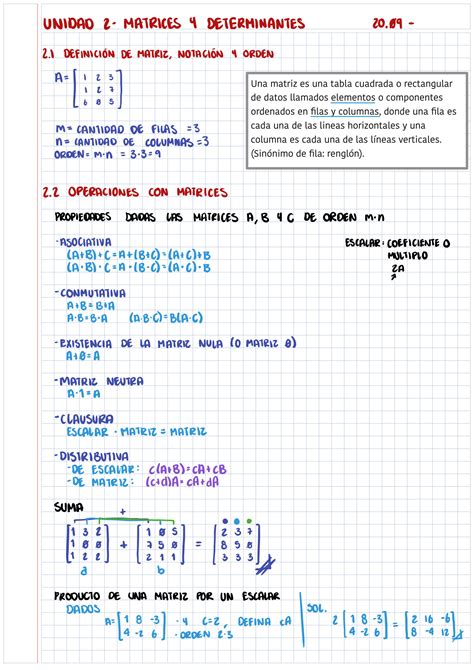 UNIDAD 2- MATRICES Y DETERMINANTES 20.09 -
2.1 DEFINICIÓN DE MATRIZ, NOTACIÓN Y ORDEN
A= [1 2 3
1 2 7
6 0 5]
Una matriz es una tabla cuadrada o rectangular
de datos llamados elementos o componentes
ordenados en filas y columnas, donde una fila es
cada una de las líneas horizontales y una
columna es cada una de las líneas verticales.
(Sinónimo de fila: renglón).
M= CANTIDAD DE FILAS =3
n= CANTIDAD DE COLUMNAS =3
ORDEN= M·n = 3·3=9
2.2 OPERACIONES CON MATRICES
PROPIEDADES DADAS LAS MATRICES A, B Y C DE ORDEN M·n
-ASOCIATIVA
(A+B)+C=A+(B+C)=(A+C)+B
(A·B)·C=A·(B·C)=(A·C)·B
ESCALAR: COEFICIENTE O
MULTIPLO
2A
-CONMUTATIVA
A+B=B+A
A·B=B·A (A·B·C)=B(A·C)
-EXISTENCIA DE LA MATRIZ NULA (O MATRIZ 0)
A+0=A
-MATRIZ NEUTRA
A·1=A
-CLAUSURA
ESCALAR · MATRIZ = MATRIZ
-DISTRIBUTIVA
-DE ESCALAR: c(A+B)=cA+cB
-DE MATRIZ: (c+d)A=cA+dA
SUMA
+
[1 3 2 + [1 0 5 = [2 3 7
1 0 0 7 5 0 8 5 0
1 2 2] 2 1 1] 3 3 3]
a b
PRODUCTO DE UNA MATRIZ POR UN ESCALAR
DATOS
A= [1 8 -3 · Y C=2, DEFINA cA
4 -2 6] · ORDEN 2·3
SOL.
2 [1 8 -3 = [2 16 -6
4 -2 6] 8 -4 12]